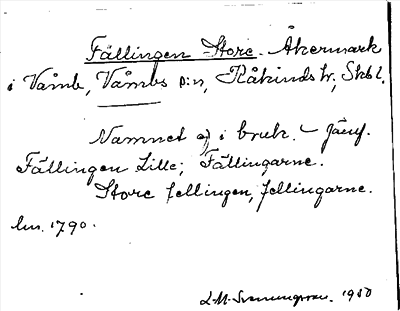 Fällingen Store. Åkermark
i Våmb, Våmbs s:n, Kåkinds hr, Skbl.
Namnet ej i bruk. – Jämf.
Fällingen Lille; Fällingarne.
Store fellingen, fellingarne.
lm. 1790.
1930